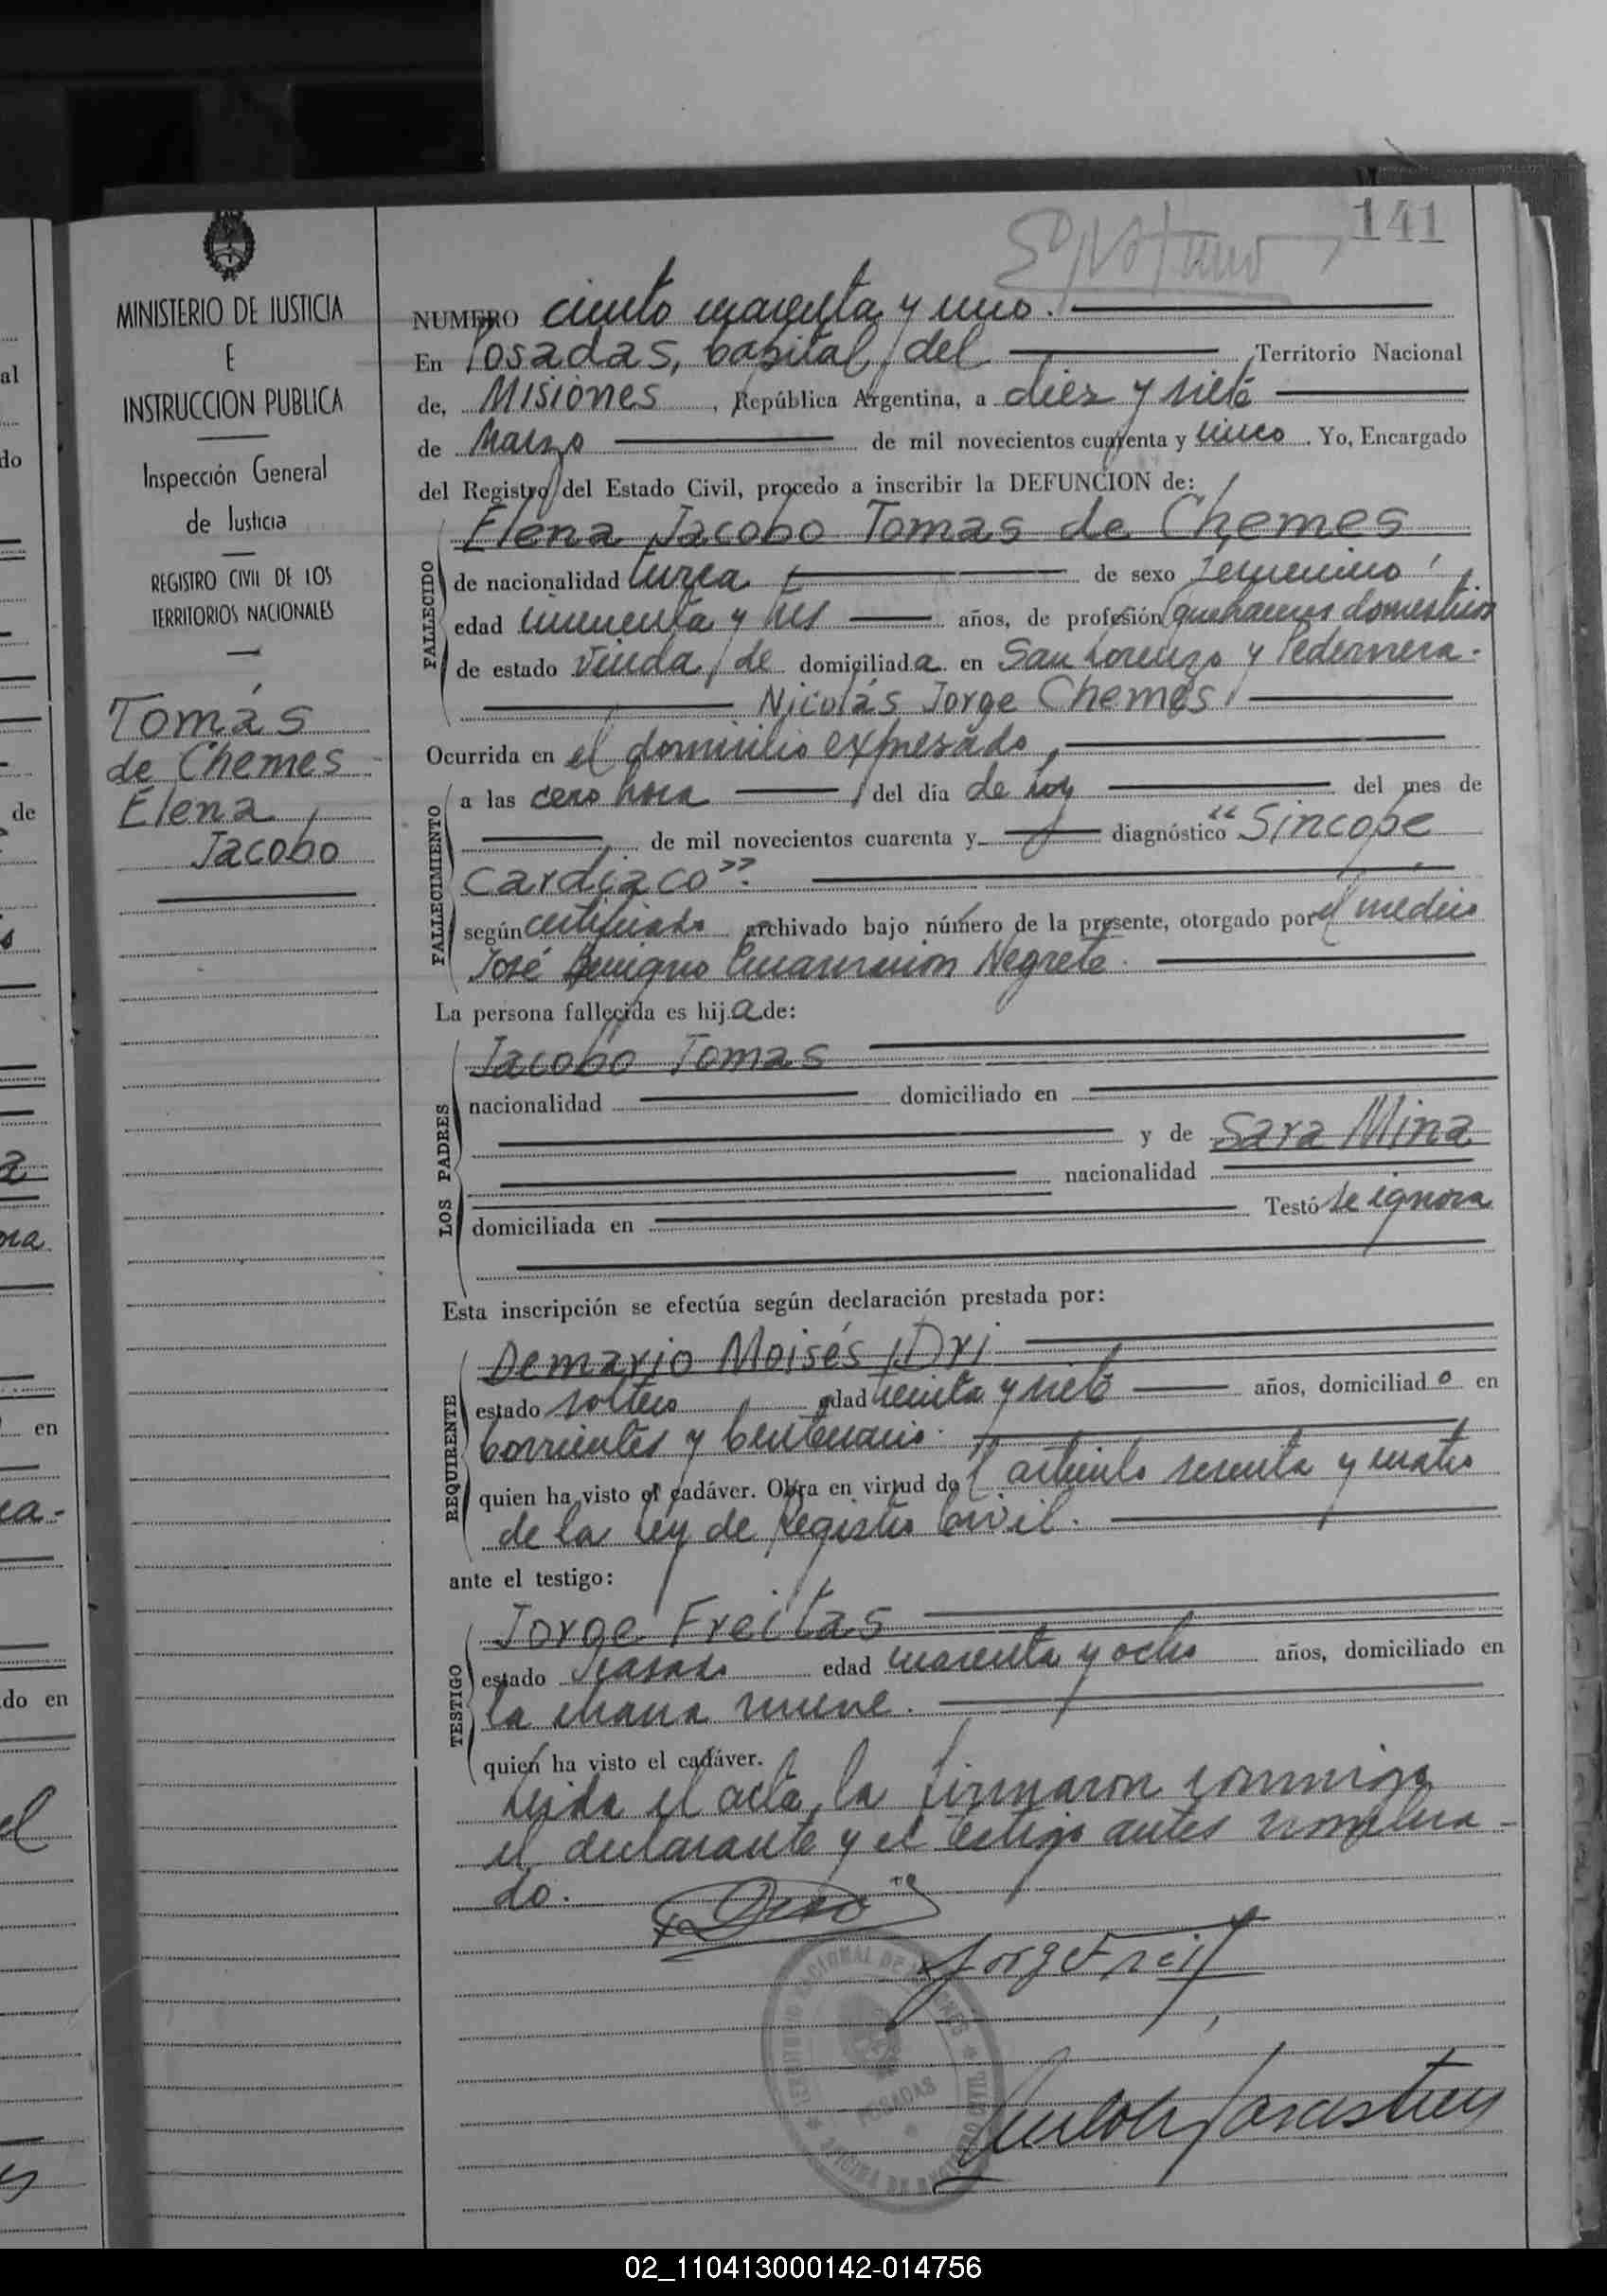 141
MINISTERIO DE JUSTICIA
E
INSTRUCCION PUBLICA
Inspección General
de Justicia
REGISTRO CIVIL DE LOS
TERRITORIOS NACIONALES
Tomás
de Chemes
Elena
Jacobo
NUMERO ciento cuarenta y uno.
En Posadas, Capital del Territorio Nacional
de, Misiones, República Argentina, a diez y siete
de Marzo de mil novecientos cuarenta y cinco. Yo, Encargado
del Registro del Estado Civil, procedo a inscribir la DEFUNCION de:
Elena Jacobo Tomas de Chemes
FALLECIDO
de nacionalidad turca de sexo femenino,
edad cincuenta y tres años, de profesión quehaceres domesticos
de estado viuda, de domiciliada en San Lorenzo y Pedernera.
Nicolás Jorge Chemes,
Ocurrida en el domicilio expresado,
FALLECIMIENTO
a las cero hora, del día de hoy del mes de
de mil novecientos cuarenta y diagnóstico "Sincope
Cardiaco".
según certificado archivado bajo número de la presente, otorgado por el médico
José Benigno Encarnación Negrete.
La persona fallecida es hija de:
LOS PADRES
Jacobo Tomas
nacionalidad domiciliado en
y de Sara Mina
nacionalidad
domiciliada en Testó se ignora
Esta inscripción se efectúa según declaración prestada por:
REQUIRENTE
Demario Moisés Dri
estado soltero edad treinta y siete años, domiciliado en
Corrientes y Centenario.
quien ha visto el cadáver. Obra en virtud del artículo sesenta y cuatro
de la ley de Registro Civil.
ante el testigo:
TESTIGO
Jorge Freitas
estado casado edad cuarenta y ocho años, domiciliado en
la chacra nueve.
quien ha visto el cadáver.
Leida el acta, la firmaron conmigo
el declarante y el testigo antes nombra-
do.
Jorge Freit
POSADAS
al
do
de
en
do en
02_110413000142-014756